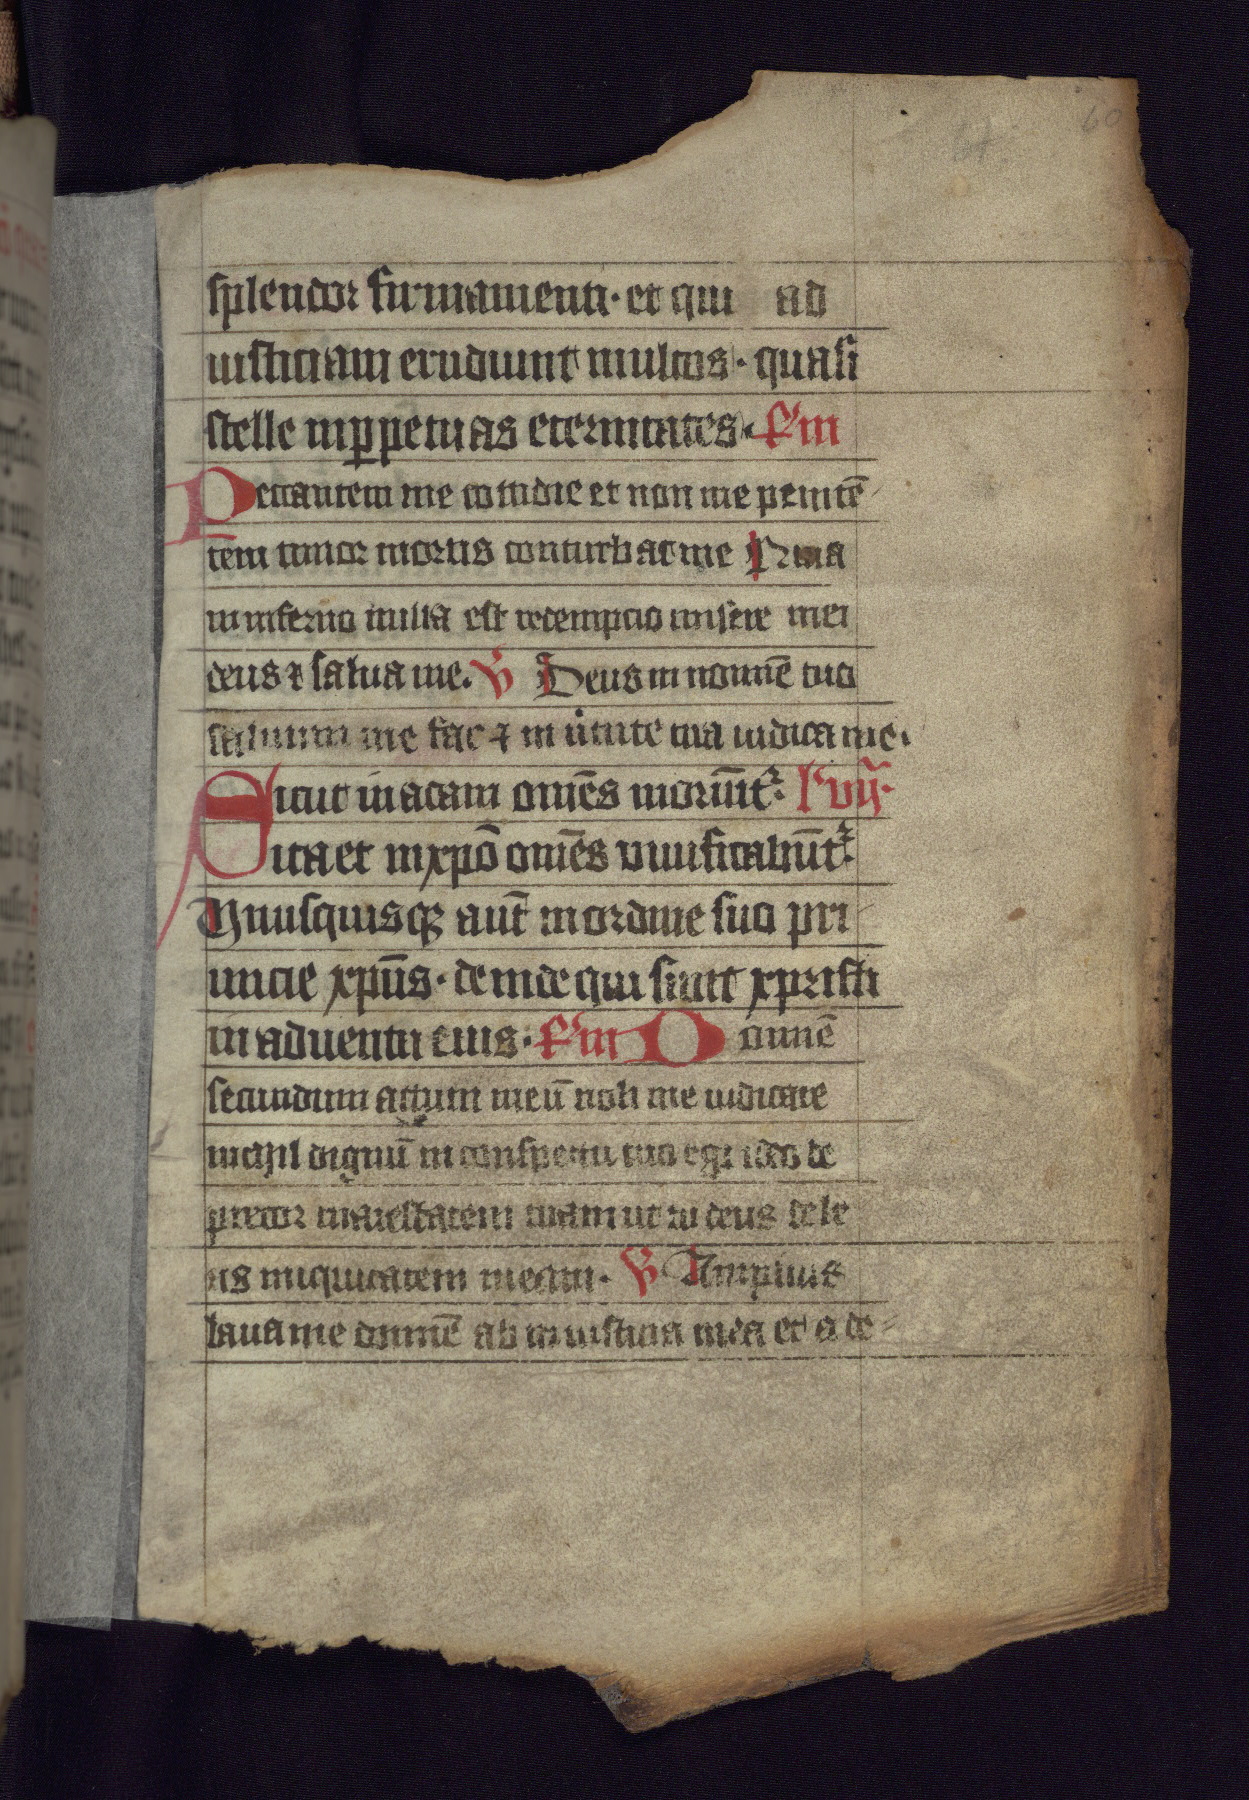 60
splendor firmamenti · et qui ad
iusticiam erudiunt multos · quasi
stelle inꝑpetuas eternitates · R̓m
Peccantem me cotidie et non me penitē
tem timor mortis conturbat me Quia
in inferno nulla est redempcio miserē mei
deus ⁊ salua me. V̓ Deus in nomīe tuo
saluum me fac ⁊ in ũtute tua iudica me.
Sicut in adam oms̄ moriūt᷑ l̓ vij̄.
ita et in xp̄o oms̄ viuificabūt᷑
Vnusquisqꝫ aut̄ in ordine suo pri
micie xp̄us · deinde qui sunt xpristi
in aduentu eius · R̓m Domīe
secundum actum meū noli me iudicare
nichil dignū in conspectu tuo egi ideo de
precor maiestatem tuam ut tu deus dele
as iniquitatem meam · V̓ Amplius
laua me domīe ab iniusticia mea et a de